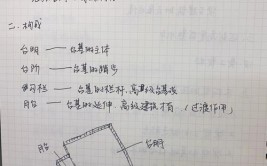 二. 构成
台明 —— 台基的主体
台阶 —— 台基的踏步
勾栏 —— 台基的栏杆, 高级台基有
月台 —— 台基的延伸, 高级建筑才有 (过渡作用)
月台
台明